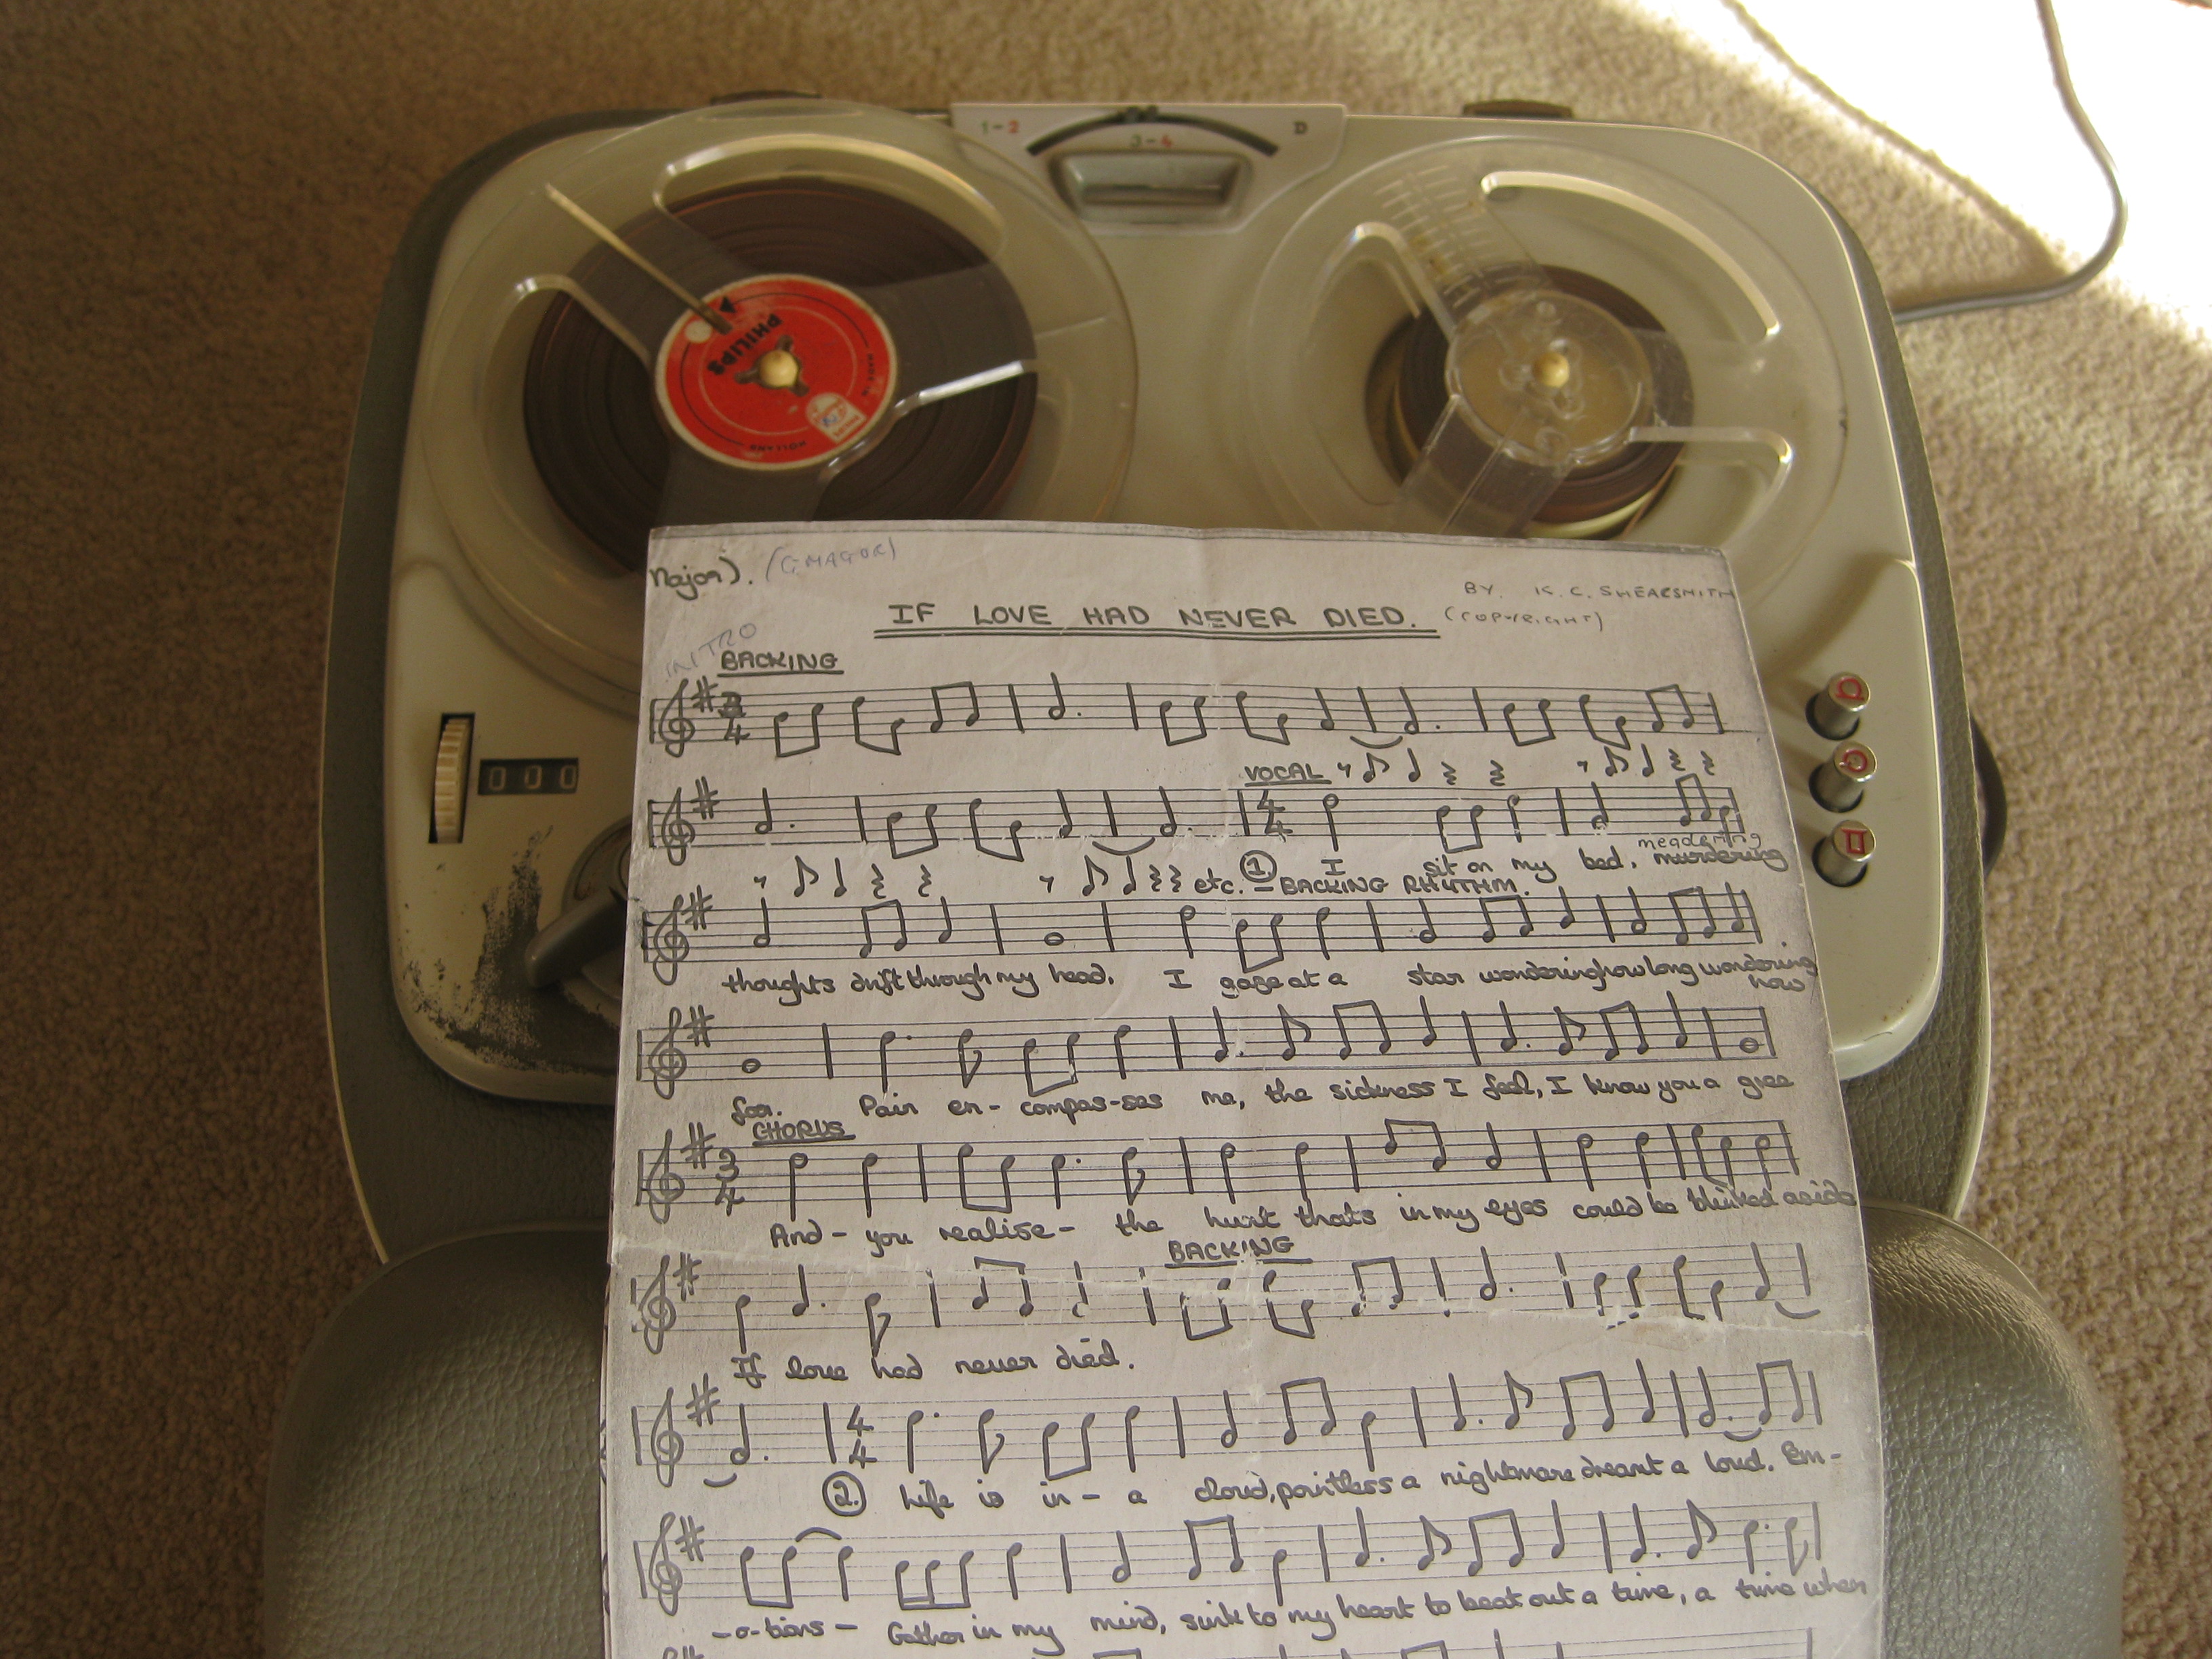 1-2 3-4 D
PHILIPS
MADE IN
HOLLAND
000
Major). (G MAGOR)
BY. K. C. SHEARSMITH
IF LOVE HAD NEVER DIED. (COPYRIGHT)
INTRO
BACKING
3
4
VOCAL
4
4
meadering
① I sit on my bed, murdering
etc. - BACKING RHYTHM.
thoughts drift through my head. I gaze at a star wondering how long wondering
how
far. Pain en- compas-ses me, the sickness I feel, I know you a gree
CHORUS
3
4
And - you realise - the hurt thats in my eyes could be blinked aside
BACKING
If love had never died.
4
4
②. Life is in - a cloud, pointless a nightmare dreamt a loud. Em-
-o-tions - Gather in my mind, sink to my heart to beat out a tune, a tune when